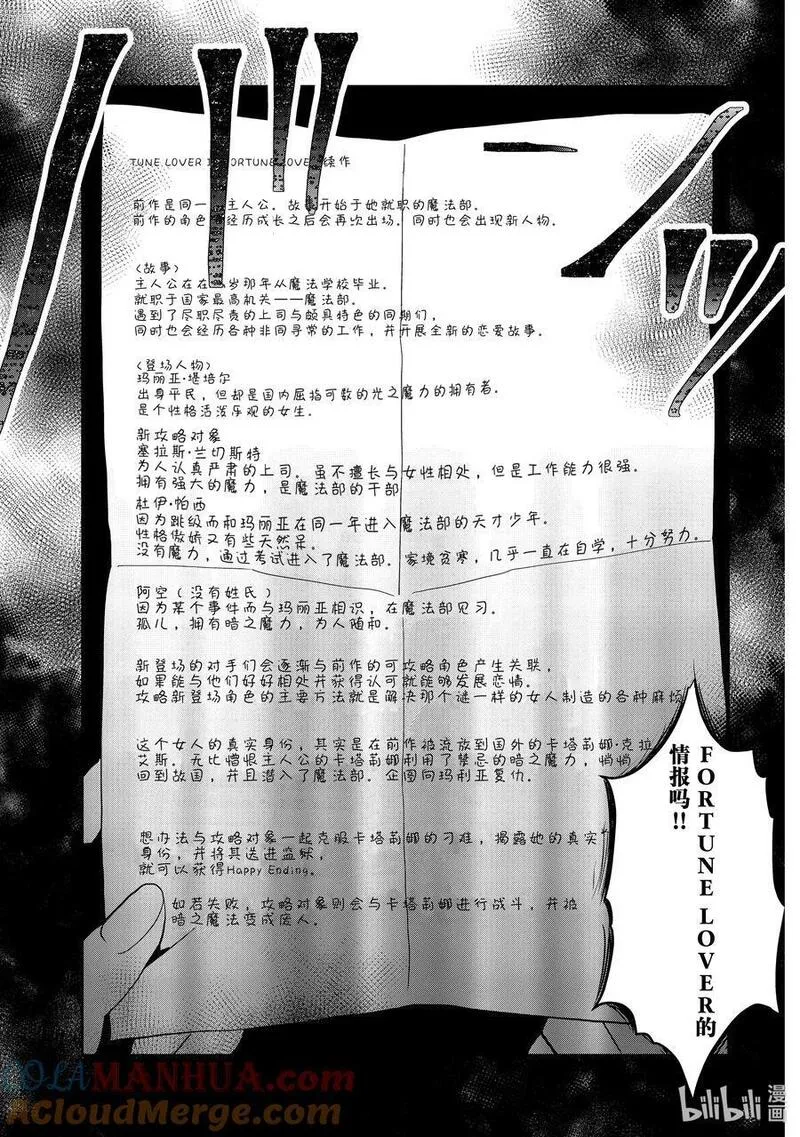 TUNE LOVER FORTUNE LOVE 续作
前作是同一 主人公。故事开始于她就职的魔法部。
前作的角色 经历成长之后会再次出场。同时也会出现新人物。
〈故事〉
主人公在在 岁那年从魔法学校毕业。
就职于国家最高机关——魔法部。
遇到了尽职尽责的上司与颇具特色的同期们，
同时也会经历各种非同寻常的工作，并开展全新的恋爱故事。
〈登场人物〉
玛丽亚·堪培尔
出身平民，但却是国内屈指可数的光之魔力的拥有者。
是个性格活泼乐观的女生。
新攻略对象
塞拉斯·兰切斯特
为人认真严肃的上司。虽不擅长与女性相处，但是工作能力很强。
拥有强大的魔力，是魔法部的干部
杜伊·帕西
因为跳级而和玛丽亚在同一年进入魔法部的天才少年。
性格傲娇又有些天然呆。
没有魔力，通过考试进入了魔法部。家境贫寒，几乎一直在自学，十分努力。
阿空（没有姓氏）
因为某个事件而与玛丽亚相识，在魔法部见习。
孤儿，拥有暗之魔力，为人随和。
新登场的对手们会逐渐与前作的可攻略角色产生关联，
如果能与他们好好相处并获得认可就能够发展恋情。
攻略新登场角色的主要方法就是解决那个谜一样的女人制造的各种麻烦
这个女人的真实身份，其实是在前作被流放到国外的卡塔莉娜·克拉
艾斯。无比憎恨主人公的卡塔莉娜利用了禁忌的暗之魔力，悄悄
回到故国，并且潜入了魔法部。企图向玛利亚复仇。
想办法与攻略对象一起克服卡塔莉娜的刁难，揭露她的真实
身份，并将其送进监狱，
就可以获得Happy Ending。
如若失败，攻略对象则会与卡塔莉娜进行战斗，并被
暗之魔法变成废人。
FORTUNE LOVER的
情报吗!!
COLAMANHUA.COM
ACloudMerge.com
bilibili
漫画